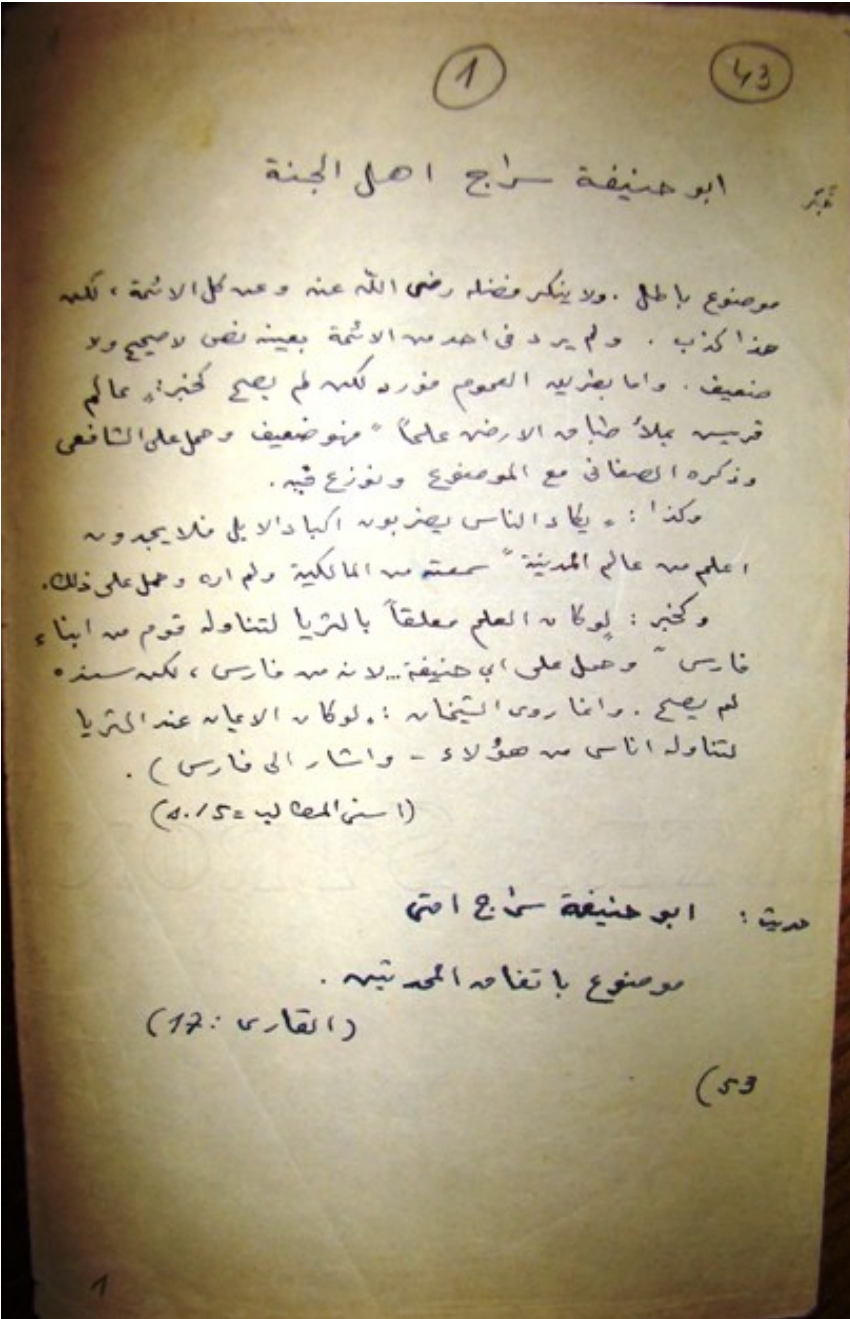 1 43
خبر ابو حنيفة سراج اهل الجنة
موضوع باطل . ولا ينكر فضله رضى الله عنه وعن كل الائمة ، لكن
هذا كذب . ولم يرد فى احد من الائمة بعينه نص لا صحيح ولا
ضعيف . واما بطريق العموم فورد لكن لم يصح كخبر : „ عالم
قريش يملأ طباق الارض علماً “ فهو ضعيف وحمل على الشافعى
وذكره الصغانى مع الموضوع ونوزع فيه .
وكذا : „ يكاد الناس يضربون اكباد الابل فلا يجدون
اعلم من عالم المدينة “ سمعته من المالكية ولم اره وحمل على ذلك .
وكخبر : „ لو كان العلم معلقاً بالثريا لتناوله قوم من ابناء
فارس “ وحمل على ابى حنيفة .. لانه من فارس ، لكن سنده
لم يصح . وانما روى الشيخان : „ لو كان الايمان عند الثريا
لتناوله اناس من هؤلاء - واشار الى فارس ) .
(اسنى المطالب =
حديث : ابو حنيفة سراج امتى
موضوع باتفاق المحدثين .
(القارى : 17)
53)
1